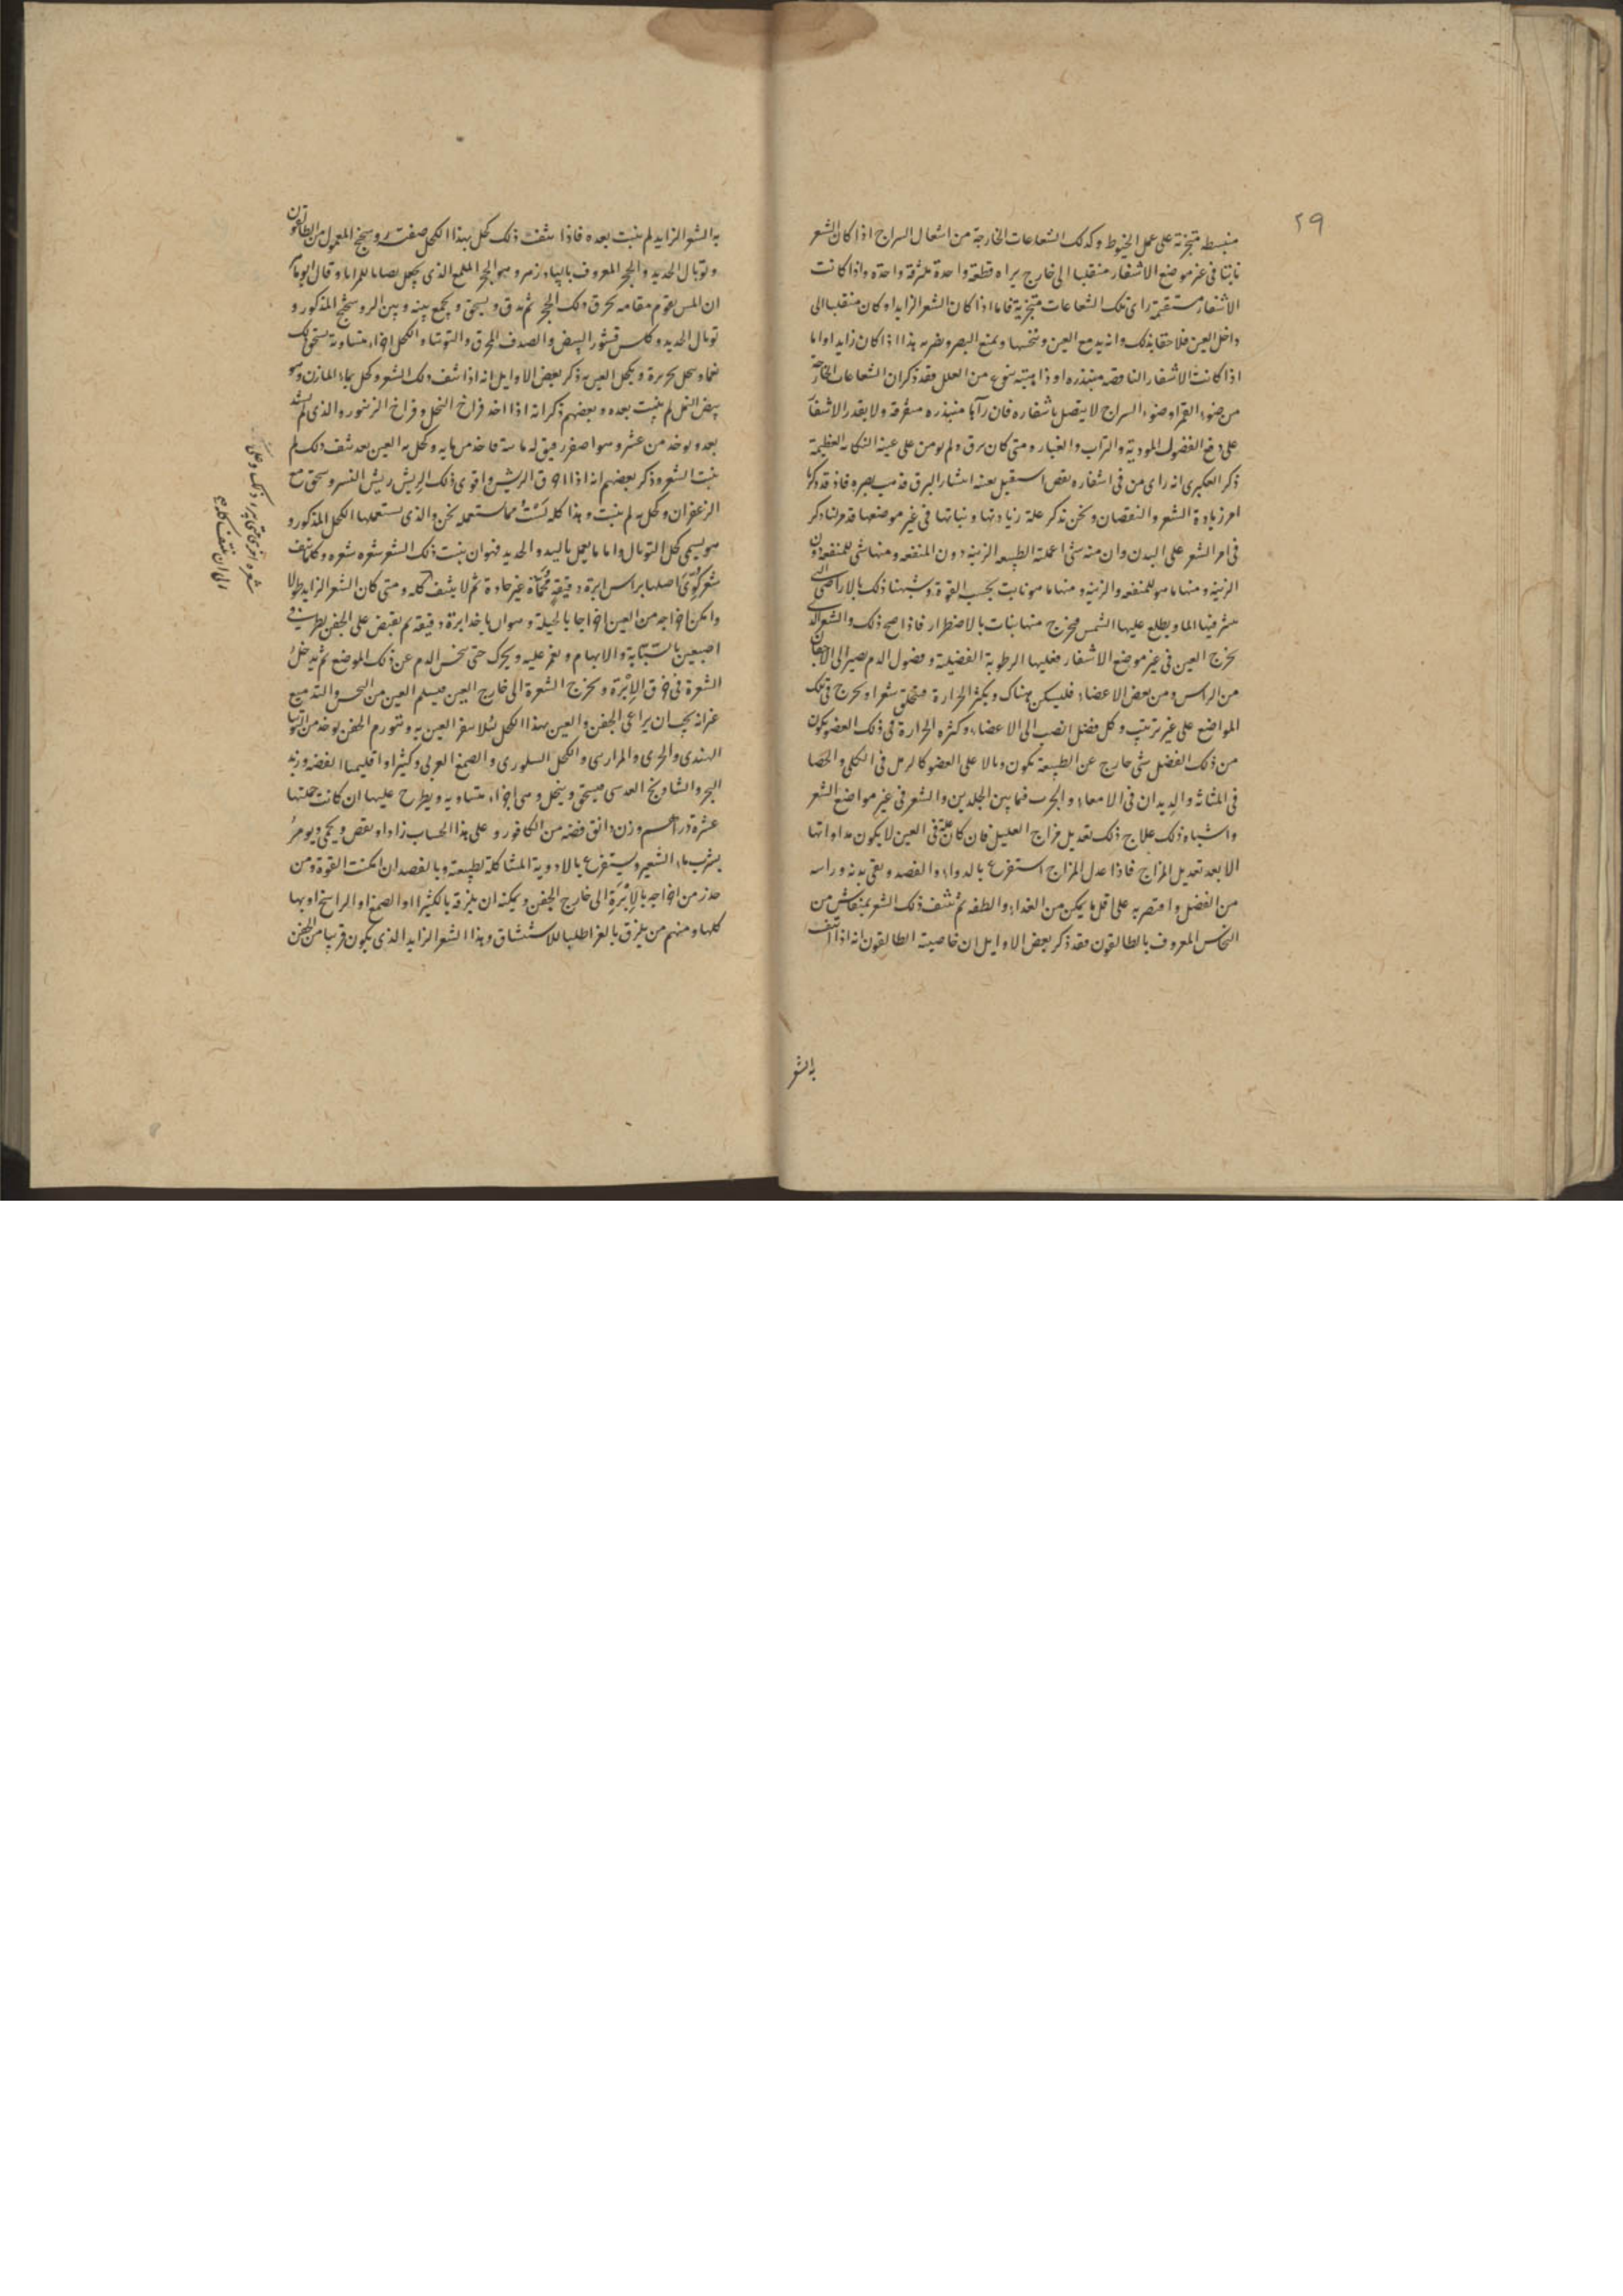 ٢٩
منبسطه متجزية على عمل الخيوط وكذلك الشعاعات الخارجة من اشعال السراج اذا كان الشعر
نابتا فى غير موضع الاشفار منقلبا الى خارج يراه قطعة واحدة ملتزقة واحدة واذا كانت
الاشفار مستقيمة راى تلك الشعاعات متجزية فاما اذا كان الشعر الزايد او كان منقلب الى
داخل العين فلا خفا بذلك وانه يدمع العين وينخسها ويمنع البصر ويضر به هذا اذا كان زايدا واما
اذا كانت الاشفار الناقصه منتثره او ذاهبة بنوع من العلل فقد ذكر ان الشعاعات الخارجة
من ضوء القمر او ضوء السراج لا يتصل باشفاره فان رآها متبدره متفرقة ولا يقدر الاشفار
على دفع الفضول الموذية والتراب والغبار ومتى كان برق ولم يومن على عينه النكايه العظيمة
ذكر العكبرى انه راى من فى اشفاره نقص استقبل بعينه انتشار البرق فذهب بصره فاذ قد ذكرنا
امر زيادة الشعر والنقصان ونحن نذكر علة زيادتها ونباتها فى غير موضعها قد مر لنا ذكر
فى امر الشعر على البدن وان منه شى اعملته الطبيعه الزينه دون المنفعه ومنها شى للمنفعه دون
الزينه ومنها ما هو للمنفعه والزينه ومنها ما هو نابت بحسب القوة وشبهنا ذلك بالاراضى التى
ينثر فيها الما ويطلع عليها الشمس فيخرج منها نبات بالاضطرار فاذا صح ذلك والشعر الذى
يخرج العين فى غير موضع الاشفار فعليها الرطوبة الفضيلة وفضول الدم يصير الى الاجفان
من الراس ومن بعض الاعضاء فليسكن هناك ويكثر الحرارة فيتخلق شعرا ويخرج فى تلك
المواضع على غير ترتيب وكل فضل انصب الى الاعضاء وكثره الحرارة فى ذلك العضو يكون
من ذلك الفضل شى خارج عن الطبيعة يكون وبالا على العضو كالرمل فى الكلى والحصا
فى المثانة والديدان فى الامعاء والجرب فيما بين الجلدين والشعر فى غير مواضع الشعر
واشباه ذلك علاج ذلك تعديل مزاج العليل فان كان علة فى العين لا يكون مداواتها
الا بعد تعديل المزاج فاذا عدل المزاج استفرغ بالدواء والفصد ونقى بدنه وراسه
من الفضل واقتصر به على اقل ما يمكن من الغذاء والطفه ثم نتف ذلك الشعر بمنقاش من
النحاس المعروف بالطالقون فقد ذكر بعض الاوايل ان خاصية الطالقون انه اذا انتف
به الشعر
به الشعر الزايد لم ينبت بعده فاذا نتف ذلك كحل بهذا الكحل صفته روسختج المعمول من الطالقون
وتوبال الحديد والحجر المعروف بالبادزهر وهو الحجر الملمع الذى يجعل نصابا للمرايا وقال ابو ماهر
ان المس يقوم مقامه يحرق ذلك الحجر ثم يدق ويسحق ويجمع بينه وبين الروسختج المذكور و
توبال الحديد وكلس قشور البيض والصدف المحرق والتوتيا والكحل اجزاء متساوية يسحق ذلك
نعما وينخل بحريرة ويكحل العين به ذكر بعض الاوايل انه اذا نتف ذلك الشعر وكحل بماء المازن وهو
بيض النمل لم ينبت بعده وبعضهم ذكر انه اذا اخذ فراخ النحل وفراخ الزنبور والذى لم يشتد
بعد ويوخذ من عشره هوا صفر رقيق له ماسة فاخذ من مايه وكحل به العين بعد نتف ذلك لم
ينبت الشعر وذكر بعضهم انه اذا احرق الريش واقوى ذلك الريش ريش النسر وسحق مع
الزعفران وكحل به لم ينبت وهذا كله لست مما استعمله نحن والذى يستعملها الكحل المذكور و
هو يسمى كحل التوبال واما ما يعمل باليد والحديد فهو ان ينبت ذلك الشعر شعره شعره وكلما نتف
شعر كوى اصلها براس ابرة دقيقة محماة غير حادة ثم لا ينتف كله ومتى كان الشعر الزايد طويلا
وامكن اخراجه من العين اخراجا بالحيلة وهو ان ياخذ ابرة دقيقه ثم يقبض على الجفن بطرفى
اصبعين بالسبابة والابهام ويغمز عليه ويحرك حتى ينخنس الدم عن ذلك الموضع ثم يدخل
الشعرة فى خرق الابرة ويخرج الشعرة الى خارج العين فيسلم العين من النخس والتدميع
غير انه يجب ان يراعى الجفن والعين بهذا الكحل لئلا يتغير العين به ويتورم الجفن يوخذ من التوتيا
الهندى والحرى والمرارسى والكحل السلورى والصمغ العربى وكثيرا واقليميا الفضه وزبد
البحر والشاذنج العدسى فيسحق وينخل وهى اجزاء متساويه ويطرح عليها ان كانت جملتها
عشرة دراهم وزن دانق فضه من الكافور وعلى هذا الحساب زاد او نقص ويحمى ويومر
بشرب ماء الشعير ويستفرغ بالادوية المشاكلة لطبيعته وبالفصد ان امكنت القوة ومن
حذر من اخراجه بالابرة الى خارج الجفن ويمكنه ان يلزقه بالكثيرا او الصمغ او الراسخ او بها
كلها ومنهم من يلزق بالغرا طلبا للاستنشاق وهذا الشعر الزايد الذى يكون قريبا من الجفن
شعره اخرى حتى يبرا ذلك وعلى
الى ان ينتف كله